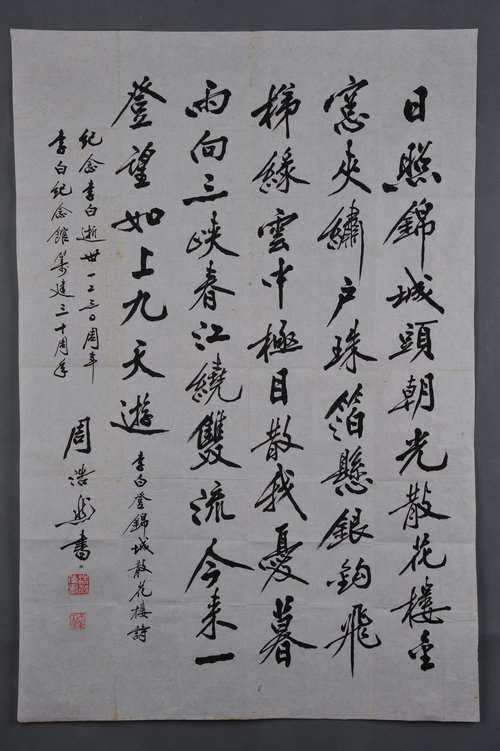 日照錦城頭朝光散花樓金
窓夾繡户珠箔懸銀鈎飛
梯緑雲中極目散我憂暮
雨向三峽春江繞雙流今來一
登望如上九天遊
李白登錦城散花樓詩
紀念李白逝世一二三〇周年
李白紀念館籌建三十周年
周浩然書